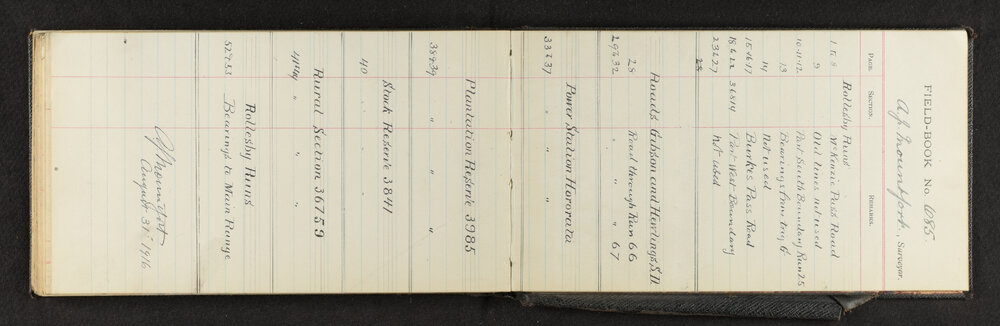 FIELD-BOOK No. 1085.
A.J. Mountfort., Surveyor.
Page. Section. Remarks.
Rollesby Runs
1 to 8 McKenzie Pass Road
9 Old lines not used
10.11.12 Part South Boundary Run 25
13 Bearings from trig G
14 Not used
15.16.17 Burkes Pass Road
18 to 22 36814 Part West Boundary
23 to 27 Not used
28
Roads Gibson and Hewlings S.D.
28 Road through Run 66
29 to 32 " " " 67
Power Station Hororata
33 to 37 " "
Plantation Reserve 3985
38 & 39 " "
Stock Reserve 3841
40 " "
Rural Section 36759
" " "
Rollesby Runs
52 & 53 Bearings to Main Range
AJMountfort
August 31st 1916